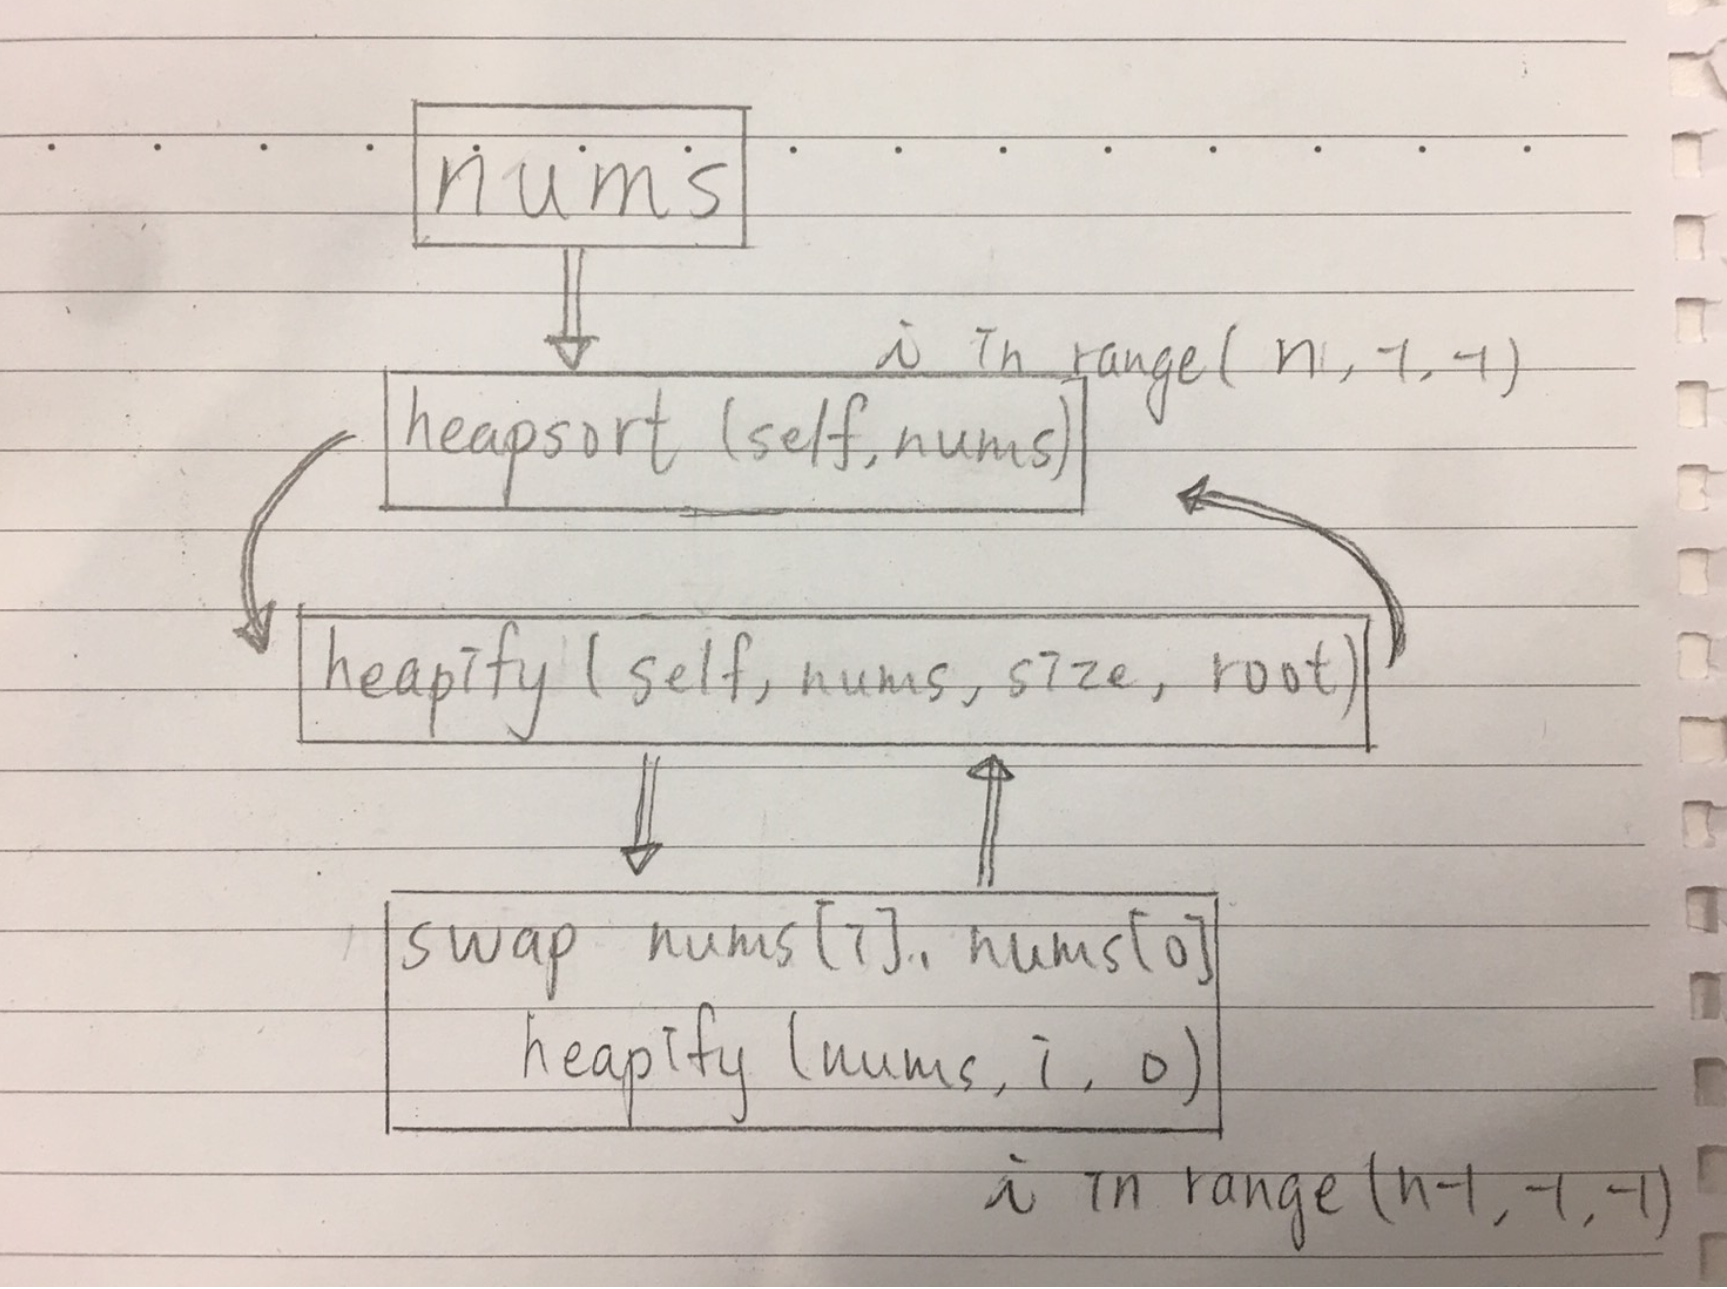 nums
i in range( n, -1, -1)
heapsort (self, nums)
heapify ( self, nums, size, root)
swap nums[i], nums[0]
heapify (nums, i, 0)
i in range (n-1, -1, -1)